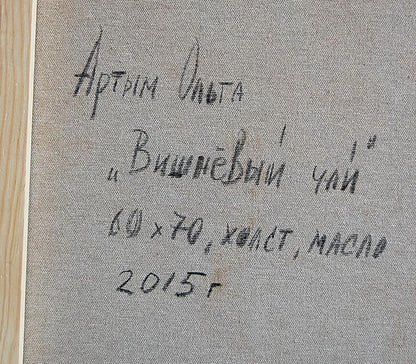 Артым Ольга
„Вишнёвый чай"
60 x 70, холст, масло
2015 г